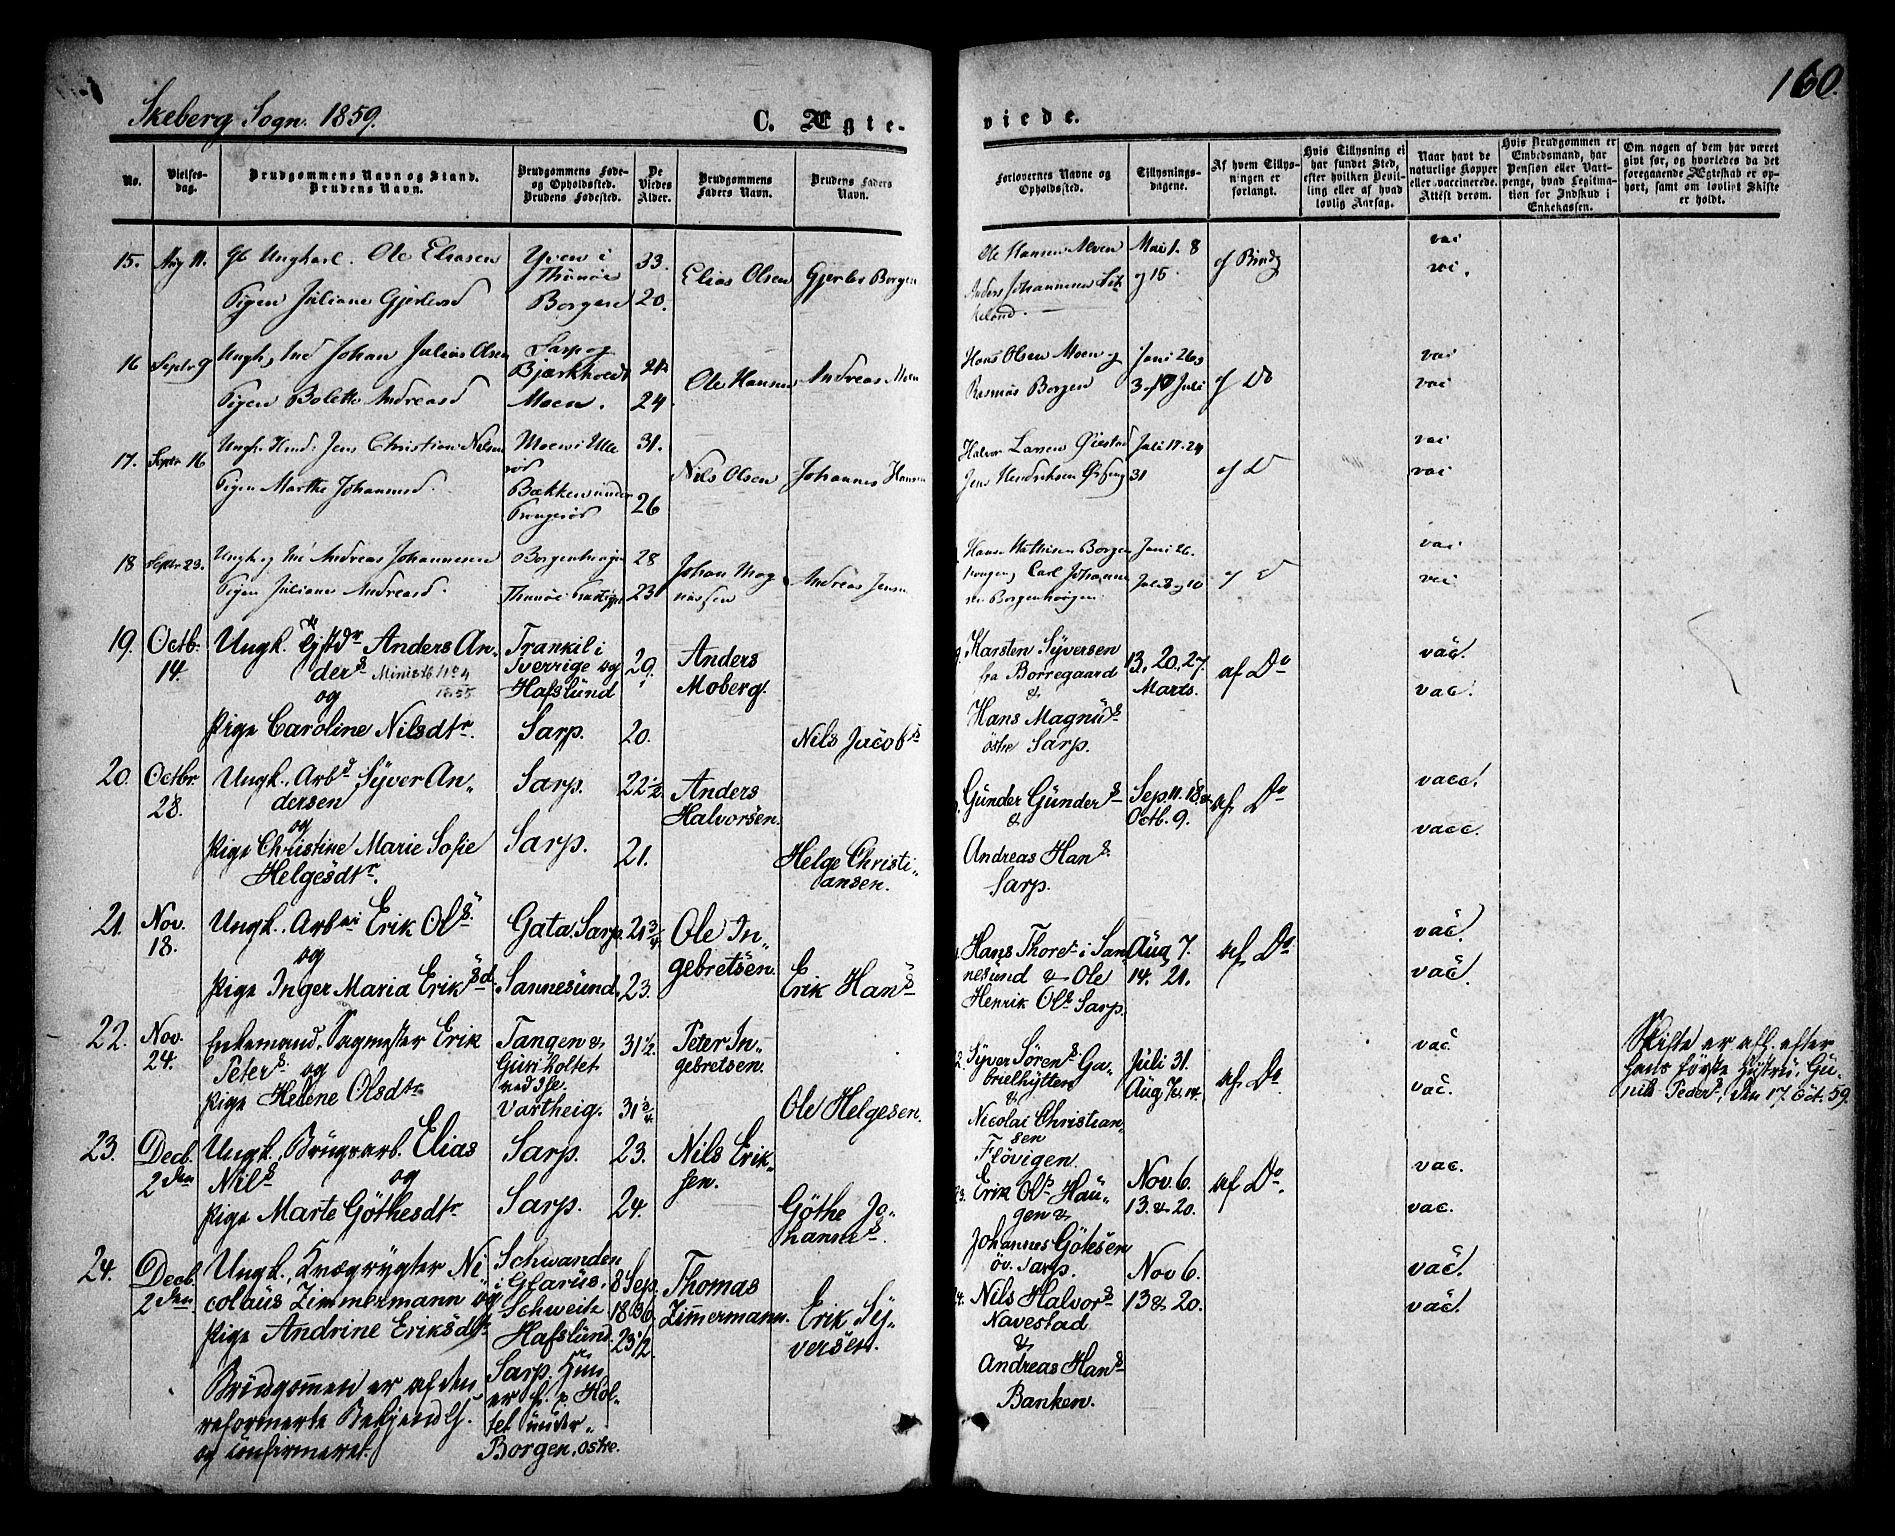 160.
Skeberg Sogn. 1859.
C. Ægte-
viede.
No.
Vielses-
dag.
Brudgommens Navn og Stand.
Brudens Navn.
Brudgommens Føde-
og Opholdssted.
Brudens Fødested.
De
Viedes
Alder.
Brudgommens
Faders Navn.
Brudens Faders
Navn.
Forlovernes Navne og
Opholdssted.
Tillysnings-
dagene.
Af hvem Tillys-
ningen er
forlangt.
Hvis Tillysning ei
har fundet Sted,
efter hvilken Bevil-
ling eller af hvad
lovlig Aarsag.
Naar havt de
naturlige Kopper
eller vaccinerede.
Attest derom.
Hvis Brudgommen er
Embedsmand, har
Pension eller Vart-
penge, hvad Legitima-
tion for Indskud i
Enkekassen.
Om nogen af dem har været
givt før, og hvorledes da det
foregaaende Ægteskab er op-
hørt, samt om lovligt Skifte
er holdt.
15. Aug 11. Ungkarl. Ole Eliasen
Pigen Juliane Gjerlesd
Yven i
Thunøe
Borgen
33.
20.
Elias Olsen
Gjerløv Borgen
Ole Hansen Alven
Anders Johannesen
Mai 1. 8
og 15.
af Brudg
vai
vai.
16 Septr 9 Ungk. Ind Johan Julius Olsen
Pigen Bolette Andreasd
Sarp og
Bjærkholdt
Moen.
21
24
Ole Hansen
Andreas Moen
Hans Olsen Moen og
Rasmus Borgen
Juni 26 og
3 og 17 Juli
af Do
vai
vai
17. Septr 16 Ungk. Jens Christian Nilsen
Pigen Marthe Johannesd.
Moen i Ulle
rød
Bækken under
31.
26
Nils Olsen
Johannes Hansen
Halvor Larsen
Jens Hendriksen
Juli 17. 24
31
af D
vai
vai
18 Septr 23. Ungk. og Ind Andreas Johannesen
Pigen Juliane Andreasd.
Borgenhaugen
Thunøe
28
23
Johan Mag
nussen
Andreas Jensen
Hans Mathisen Borgen
haugen, Carl Johanne
sen Borgenhaugen.
Juni 26.
Juli 3 og 10
af D
vai
vai
19. Octb.
14.
Ungk. Anders An„
ders
og
Pige Caroline Nilsdtr.
Trankil i
Sverrige og
Hafslünd
Sarp.
29.
20.
Anders
Moberg.
Nils Jacobs
Karsten Syversen
fra Borregaard
&
Hans Magnüs
östre Sarp.
13, 20, 27.
Marts.
af Do
vac.
vac.
20. Octbr.
28.
Ungk. Arbd Syver An„
dersen
og
Pige Christine Marie Sofie
Helgesdtr.
Sarp.
Sarp.
22½
21.
Anders
Halvorsen.
Helge Christi„
ansen.
Günder Günders
&
Andreas Hans
Sarp.
Sep. 11. 18 &
Octb. 9.
af. Do
vacc.
vacc.
21. Nov.
18.
Ungk. Arb Erik Ols.
og
Pige Inger Maria Eriksd.
Gata. Sarp.
Sannesünd.
21¾
23.
Ole In„
gebretsen.
Erik Hans
Hans Thores i San
nesünd & Ole
Henrik Ols Sarp.
Aüg 7.
14. 21.
af. Do
vac.
vac.
22. Nov.
24.
Enkemand. Sagmester Erik
Peters. og
Pige Helene Olsdtr
Tangen &
Guriholtet
ved Ise.
Vartheig.
31½.
31¾
Peter In„
gebretsen.
Ole Helgesen.
Syver Sörens Ga„
brielhytten
&
Nicolai Christian„
sen
Flövigen.
Juli 31.
Aug. 7 & 14.
af. Do
vac.
vac.
Skifte er afh. efter
hans første Hustrü, Gü„
nild Peders, den 17 Oct. 59.
23. Decb.
2den
Ungk., Brügsarb. Elias
Nils og
Pige Marte Göthesdtr.
Sarp.
Sarp.
23.
24.
Nils Erik„
sen.
Göthe Jo„
hanns.
Erik Ols Haü„
gen &
Johannes Götesen
öv. Sarp.
Nov. 6.
13. & 20.
af Do.
vac.
vac.
24. Decb.
2den
Ungk., Kvægrygter Ni„
colaüs Zimmermann og
Pige Andrine Eriksdtr
Brüdgommen er af den
reformerte Bekjendels.
og confirmeret.
Schwanden
i Glarüs,
Schweitz
Hafslünd.
Sarp. Hun
er f. p. Hol„
tet ünder
Borgen, östre.
8 Sep.
1830.
23½.
Thomas
Zimmermann.
Erik Sy„
versen.
Nils Halvors
Navestad
&
Andreas Hans
Banken.
Nov 6.
13 & 20.
vac.
vac.